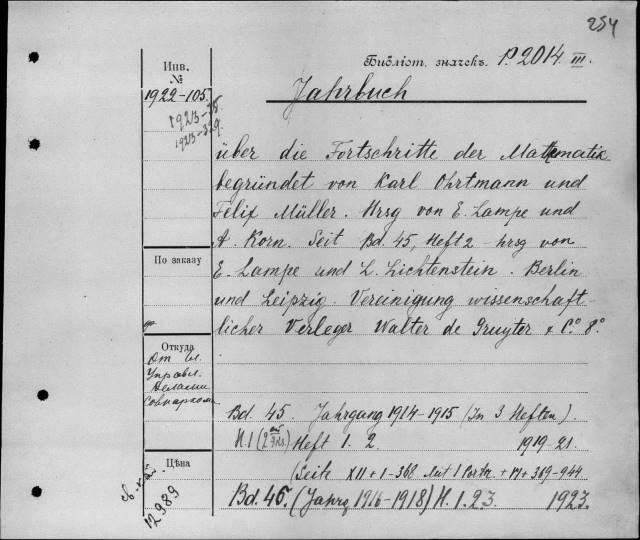 254
Библіот. значекъ. P. 2014 III.
Инв.
№
1922-105.
1923-
1923-329.
Jahrbuch
über die Fortschritte der Mathematik
begründet von Karl Ohrtmann und
Felix Müller. Hrsg von E. Lampe und
A. Korn. Seit Bd. 45, Heft 2 - hrsg von
E. Lampe und L. Lichtenstein. Berlin
und Leipzig. Vereinigung wissenschaft-
licher Verleger Walter de Gruyter & C° 8°
По заказу
Откуда
От
Управл.
Делами
Совнаркома
Цѣна
12989
Bd. 45. Jahrgang 1914-1915 (In 3 Heften).
H.1 (2 Heft 1. 2. 1919-21.
(Seit XII + 1-368 mit 1 Portr. + IV + 369-944
Bd. 46. (Jahrg 1916-1918) H. 1.2.3 1923.